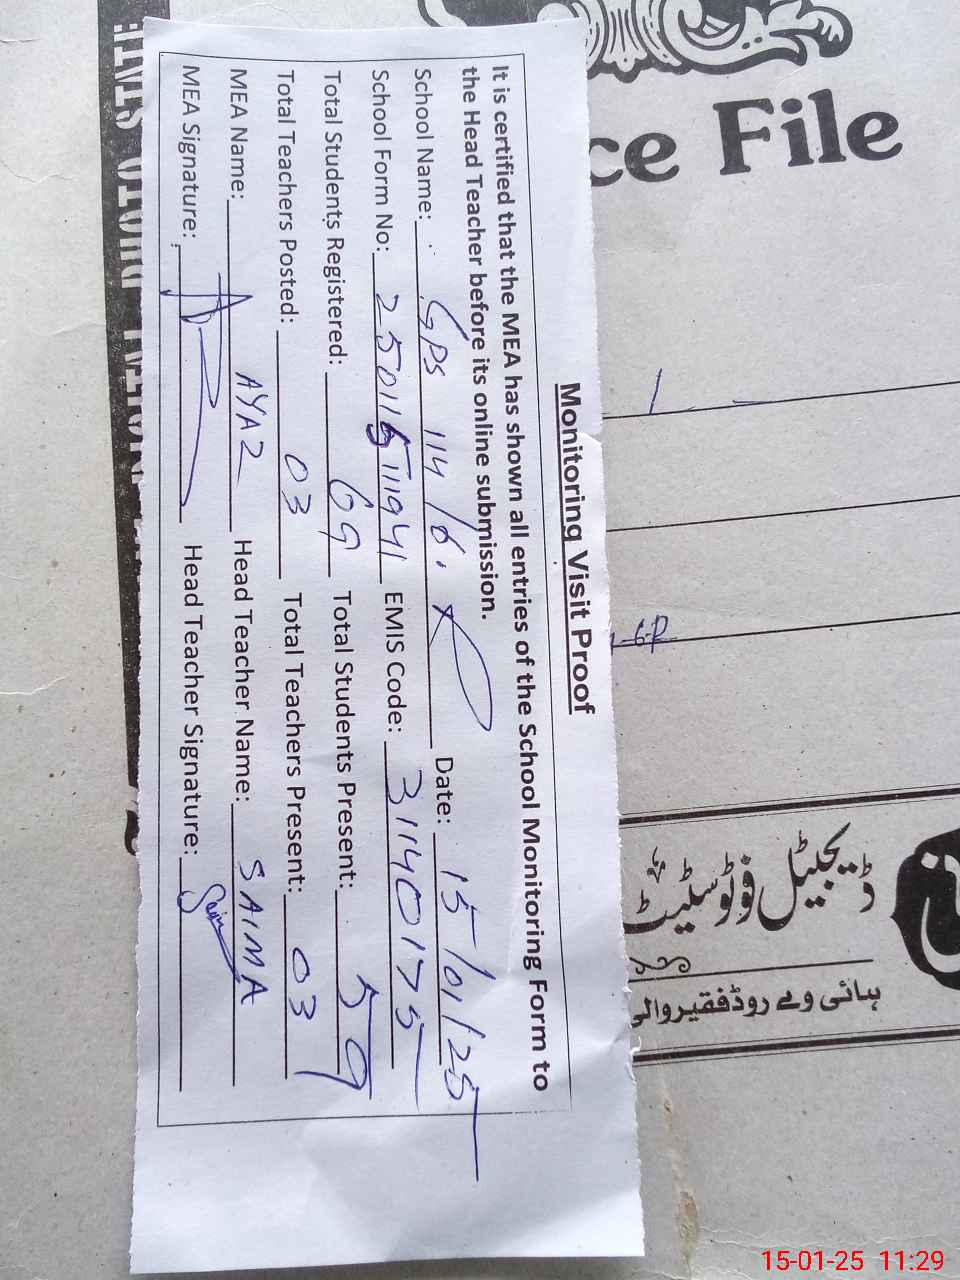 Monitoring Visit Proof
It is certified that the MEA has shown all entries of the School Monitoring Form to
the Head Teacher before its online submission.
School Name: GPS 114/6.R Date: 15/01/25
School Form No: 25011511941 EMIS Code: 31140175
Total Students Registered: 69 Total Students Present: 59
Total Teachers Posted: 03 Total Teachers Present: 03
MEA Name: AYAZ Head Teacher Name: SAIMA
MEA Signature: Head Teacher Signature: Saima
ce File
6-R
ڈیجیٹل فوٹو سٹیٹ
ہائی وے روڈ فقیر والی
15-01-25 11:29